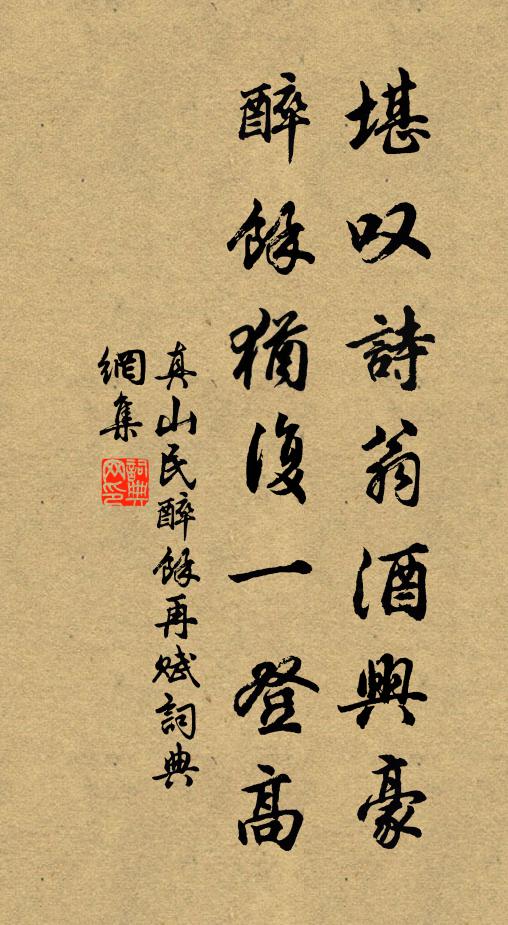 堪叹詩翁酒興豪
醉餘猶復一登高
真山民醉餘再賦詞典
網集
詞典网印